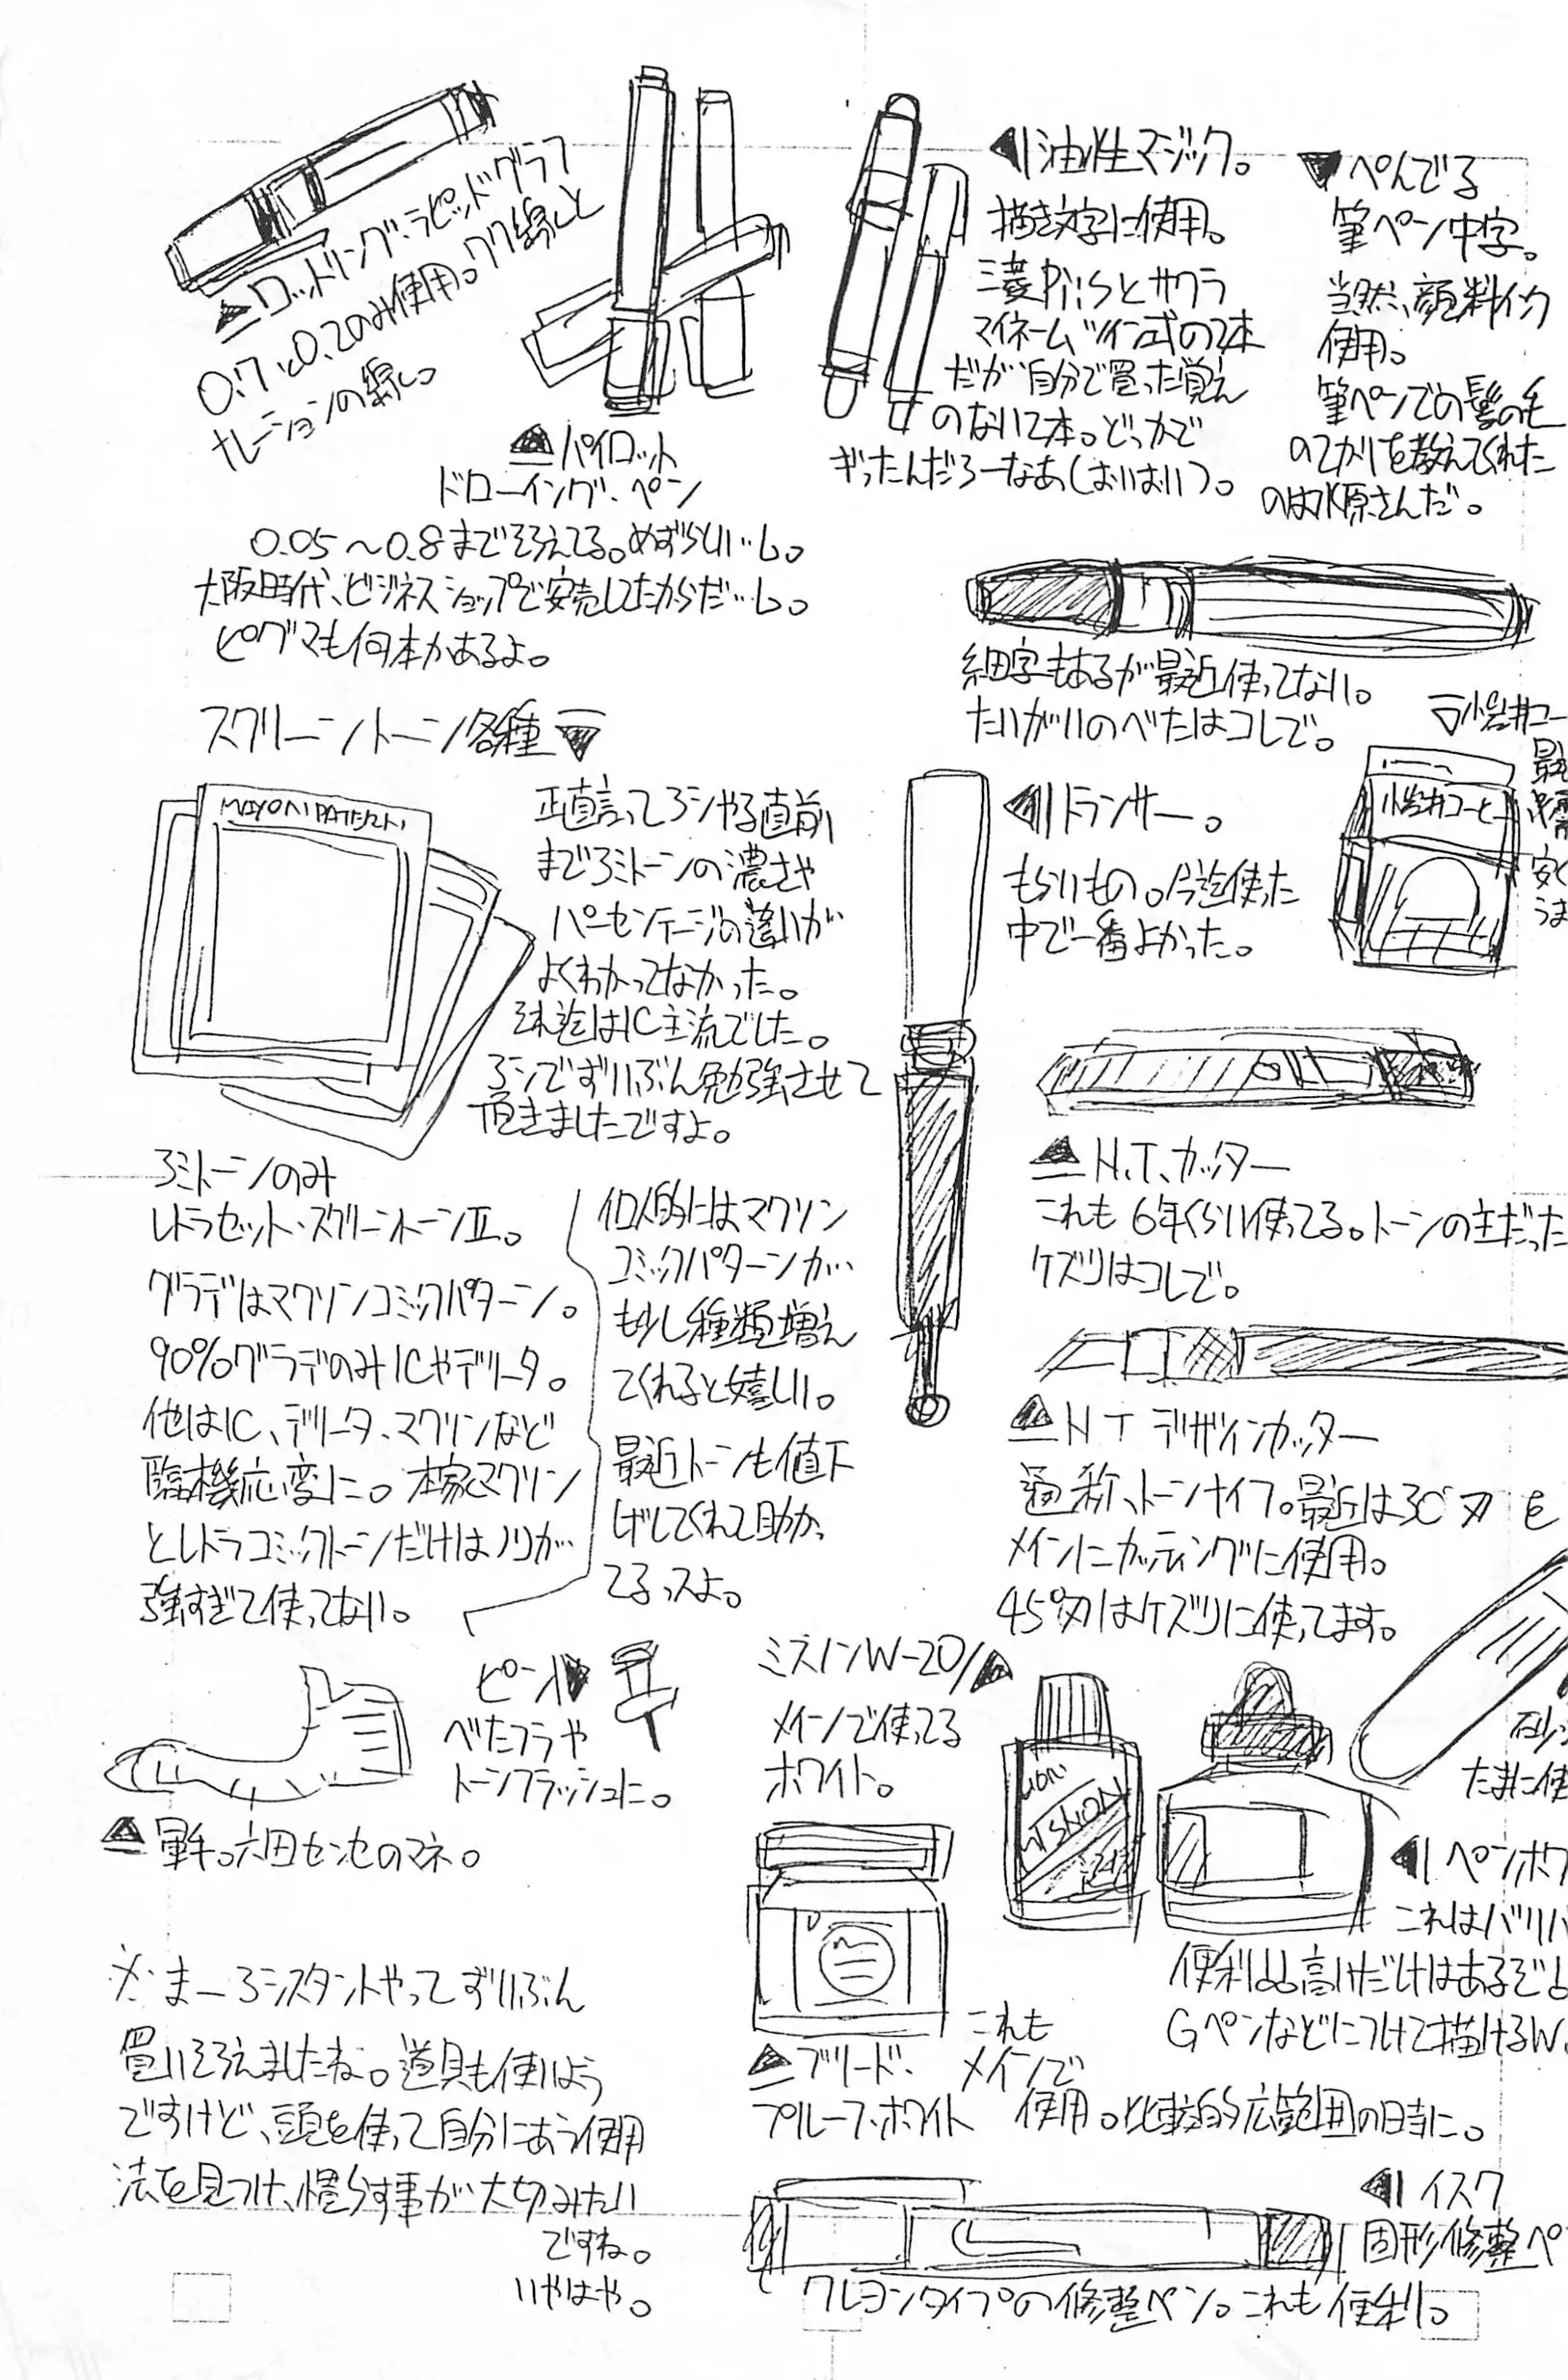 ▲ロットリング・ラピッドグラフ
0.7と0.2のみ使用。ワク線と
ナレーションの線し。
▲パイロット
ドローイング・ペン
0.05〜0.8までそろえてる。めずらしい…し。
大阪時代、ビジネスショップで安売してたからだ…し。
ピグマも何本かあるよ。
◀油性マジック。
描き文字に使用。
三菱PiiSとサクラ
マイネームツイン式の2本
だが自分で買った覚え
のない2本。どっかで
ぎったんだろーなあ(おいおい)。
▼ぺんてる
筆ペン中字。
当然、顔料インク
使用。
筆ペンでの髪の毛
のてかりを教えてくれた
のは水原さんだ。
細字もあるが最近使ってない。
たいがいのべたはコレで。
スクリーントーン各種▼
MAXON PATTERN
正直言ってアシやる直前
までアミトーンの濃さや
パーセンテージの違いが
よくわかってなかった。
それ迄はIC主流でした。
アシでずいぶん勉強させて
頂きましたですよ。
アミトーンのみ
レトラセット・スクリーントーンII。
グラデはマクソンコミックパターン。
90%グラデのみICやデリータ。
他はIC、デリータ、マクソンなど
臨機応変に。本家マクソン
とレトラコミックトーンだけはノリが
強すぎて使ってない。
個人的にはマクソン
コミックパターンが
も少し種類増え
てくれると嬉しい。
最近トーンも値下
げしてくれて助かっ
てるっスよ。
◀トランサー。
もらいもの。今迄使った
中で一番よかった。
▽小岩井コー
最
安く
うま
小岩井コーヒー
▲N.T.カッター
これも6年くらい使ってる。トーンの主だった
ケズリはコレで。
▲NTデザインカッター
通称、トーンナイフ。最近は30°刃を
メインにカッティングに使用。
45°刃はケズリに使ってます。
砂
たまに使
ピン▶
べたフラや
トーンフラッシュに。
▲軍手。六田センセのマネ。
ミスノンW-20▲
メインで使ってる
ホワイト。
LION
MISNON
◀ペンホワ
これはバリバ
便利よ。高いだけはあるぞよ
Gペンなどにつけて描けるW。
▲ブリード・
プルーフ・ホワイト
これも
メインで
使用。比較的広範囲の時に。
※まーアシスタントやってずいぶん
買いそろえましたね。道具も使いよう
ですけど、頭を使って自分にあう使用
法を見つけ、慣らす事が大切みたい
ですね。
いやはや。
◀イスク
固形修整ペ
クレヨンタイプの修整ペン。これも便利。